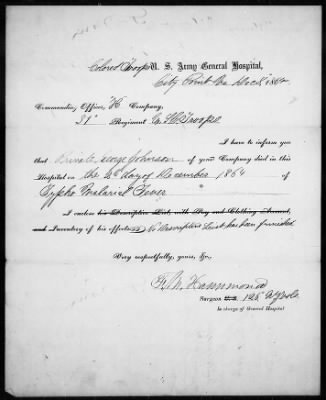 Colored Troops U. S. Army General Hospital,
City Point Va Dec 1864
Commanding Officer, K Company,
31" Regiment U.S.C. Troops
I have to inform you
that Private George Johnson of your Company died in this
Hospital on the day of December 1864 of
Typho Malarial Fever
I enclose his Descriptive List, with Pay and Clothing Account,
and Inventory of his effects. No Descriptive List has been furnished
Very respectfully, yours, &c.,
Hammond
Surgeon U.S. 126 N.Y. Vols
In charge of General Hospital